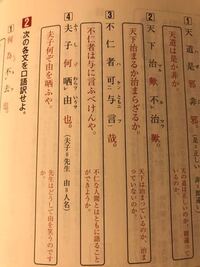 ① 天道是邪非邪。
天道は是か非か。
② 天下治歟不治歟。
天下治まるか治まらざるか。
天下は治まっているのか、治まっていないのか。
③ 不仁者可与言哉。
不仁者は与に言ふべけんや。
不仁な人間とはともに語ることができようか。
④ 夫子何哂由也。
夫子何ぞ由を哂ふや。
(夫子=先生 由=人名)
先生はどうして由を笑うのですか。
2 次の各文を口語訳せよ。
① 何為不去也。